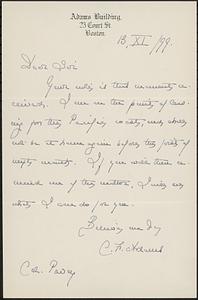 Adams Building,
23 Court St.
Boston.
13, XI /99.
Dear Sir:
Your note is this moment re-
ceived. I am on the point of leav-
ing for the Pacific coast, and shall
not be at home again before the
If you will then
remind me of the matter, I will see
what I can do for you.
Believe me &c
C. F. Adams
Col. Pavey